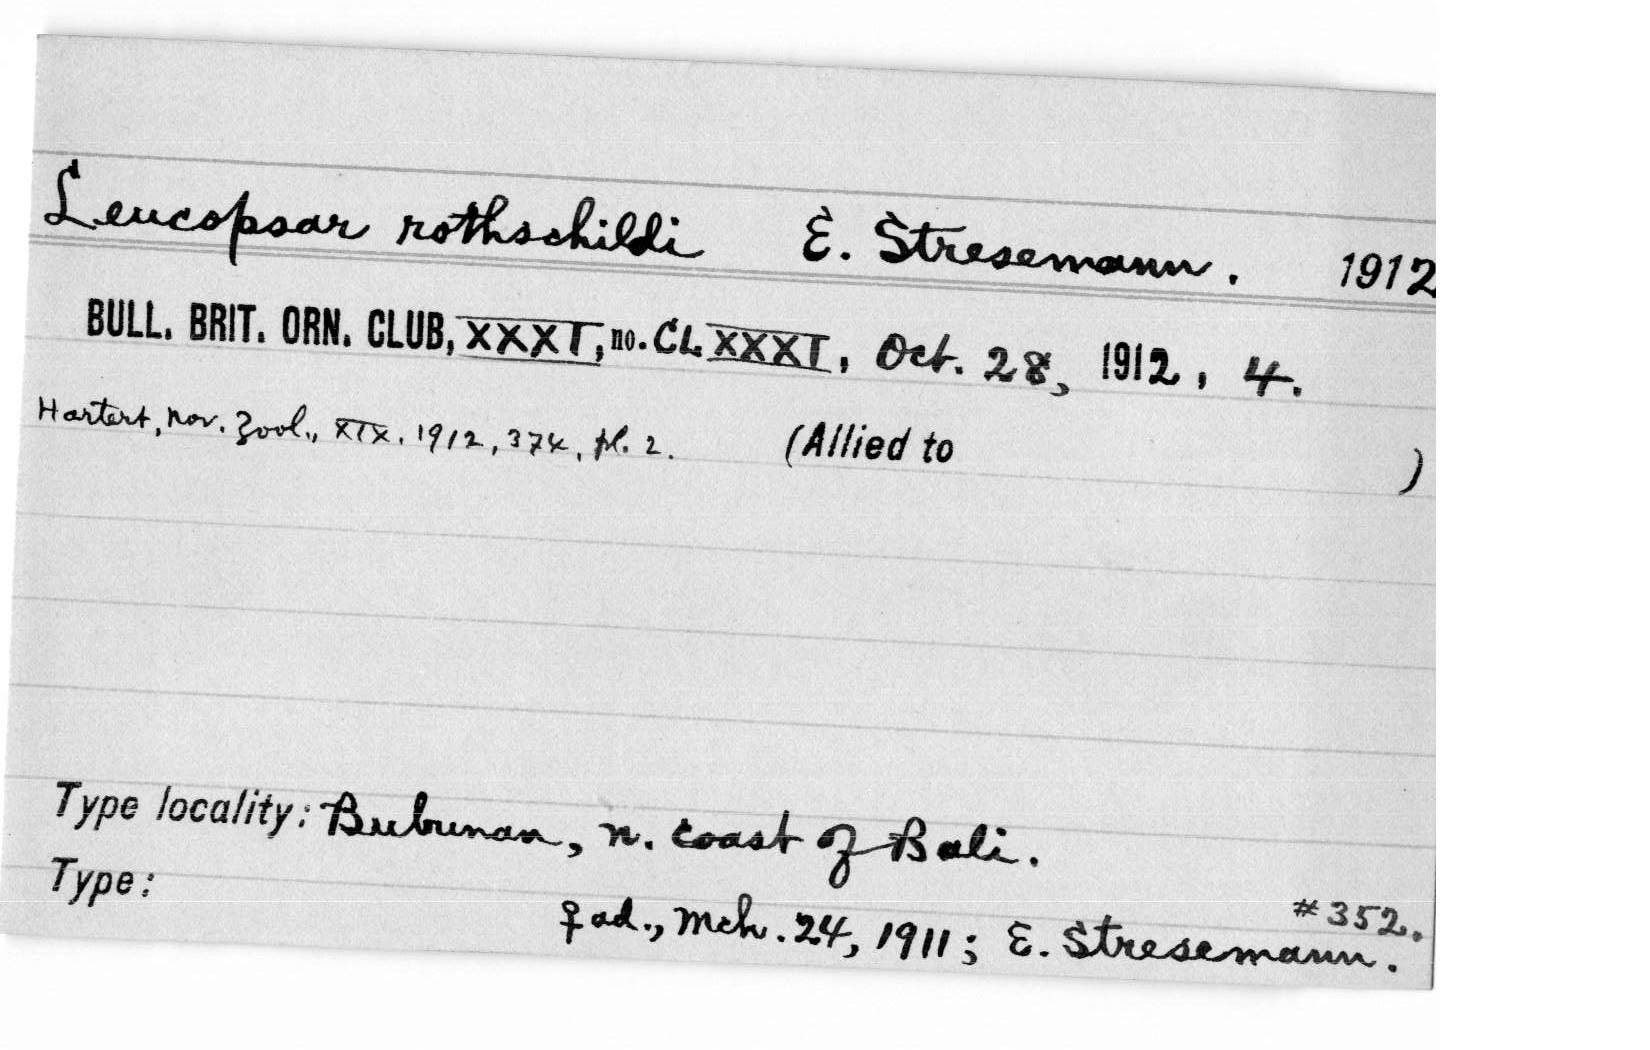 Leucopsar rothschildi E. Stresemann. 1912
BULL. BRIT. ORN. CLUB, XXXI, no. CLXXXI, Oct. 28, 1912, 4.
Hartert, Nov. Zool., XIX. 1912, 374, pl. 2. (Allied to )
Type locality: Bubunan, n. coast of Bali.
Type: #352.
♀ ad., Mch. 24, 1911; E. Stresemann.